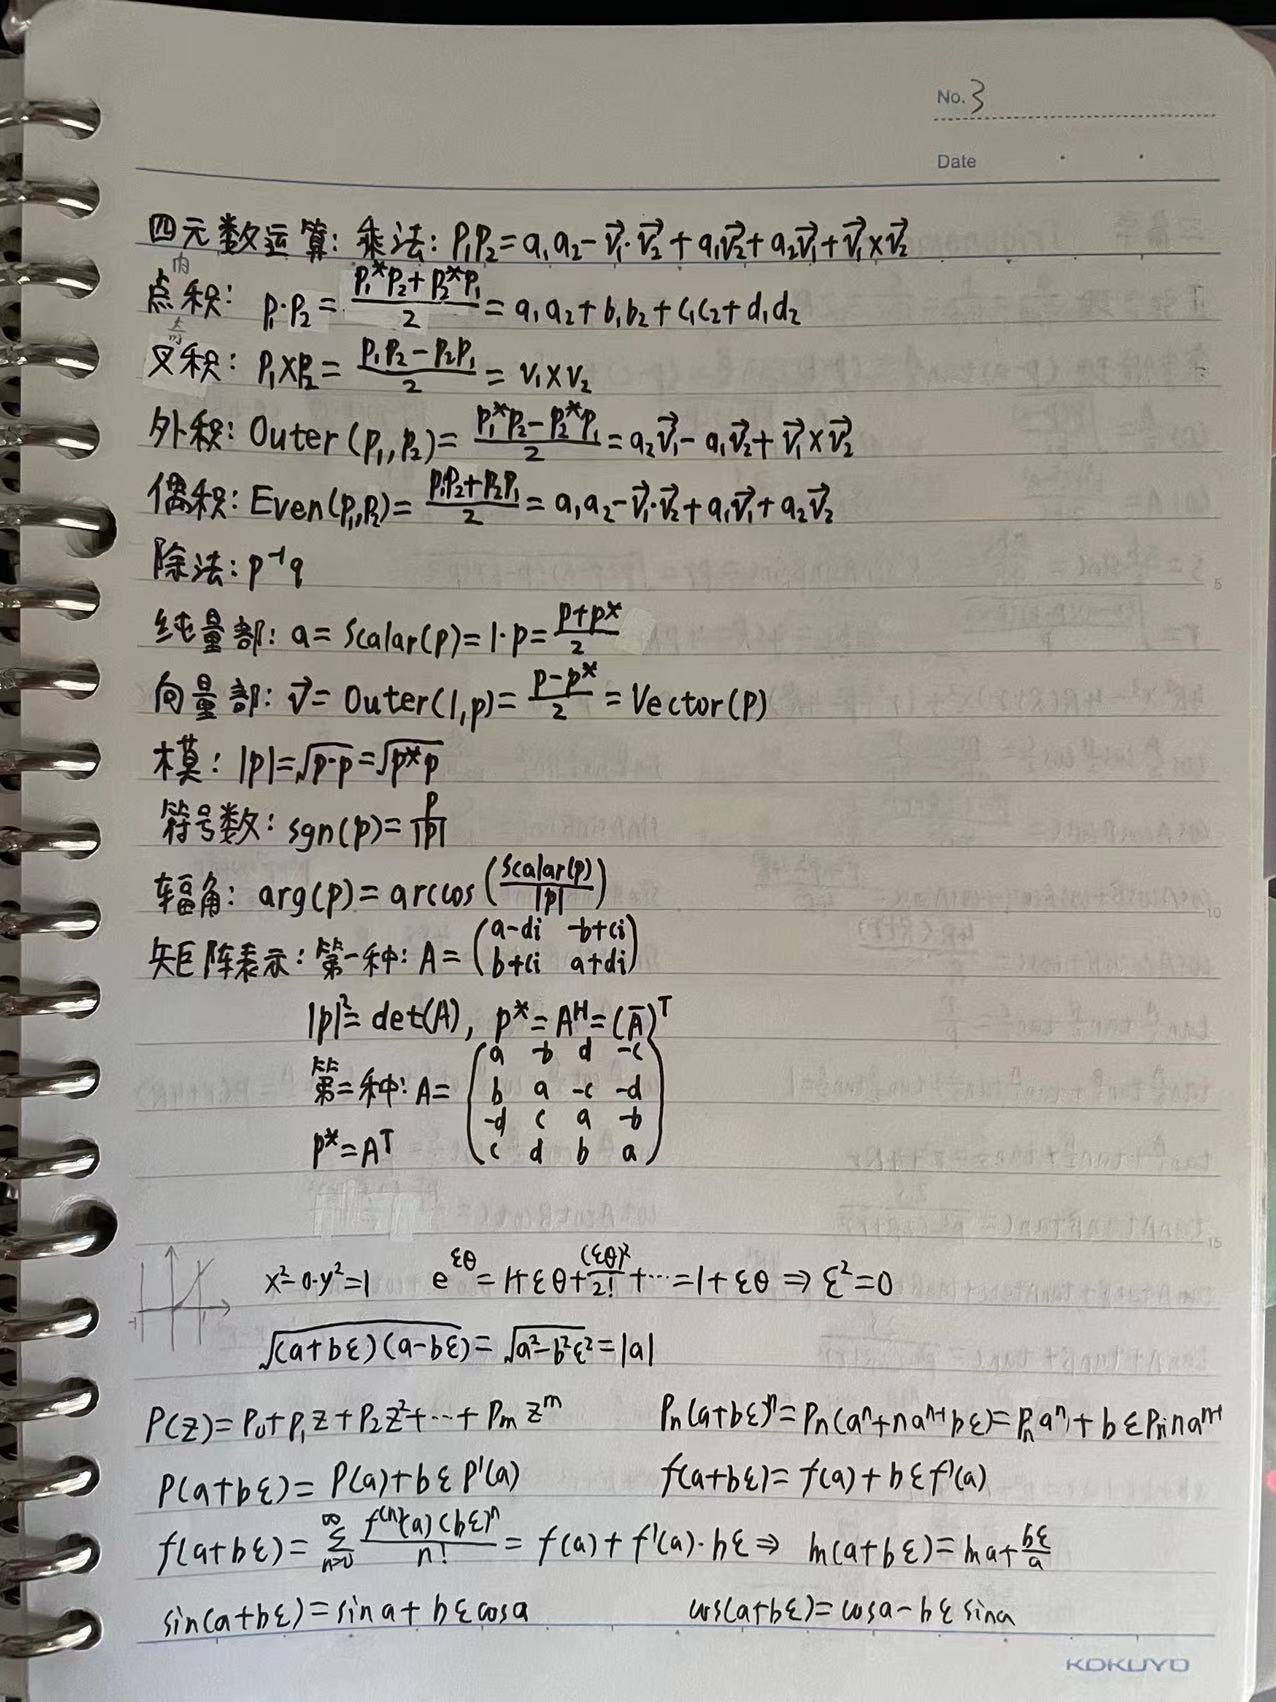 No. 3
Date
四元数运算: 乘法: P₁P₂ = a₁a₂ - v⃗₁·v⃗₂ + a₁v⃗₂ + a₂v⃗₁ + v⃗₁×v⃗₂
内
点积: p₁·p₂ = (p₁*p₂ + p₂*p₁)/2 = a₁a₂ + b₁b₂ + c₁c₂ + d₁d₂
奇
叉积: p₁×p₂ = (p₁p₂ - p₂p₁)/2 = v₁×v₂
外积: Outer(p₁,p₂) = (p₁*p₂ - p₂*p₁)/2 = a₂v⃗₁ - a₁v⃗₂ + v⃗₁×v⃗₂
偶积: Even(p₁,p₂) = (p₁p₂ + p₂p₁)/2 = a₁a₂ - v⃗₁·v⃗₂ + a₁v⃗₁ + a₂v⃗₂
除法: p⁻¹q
纯量部: a = Scalar(p) = 1·p = (p+p*)/2
向量部: v⃗ = Outer(1,p) = (p-p*)/2 = Vector(p)
模: |p| = √(p·p) = √(p*p)
符号数: sgn(p) = p/|p|
辐角: arg(p) = arccos(Scalar(p)/|p|)
矩阵表示: 第一种: A = (a-di -b+ci
b+ci a+di)
|p|² = det(A), p* = Aᴴ = (Ā)ᵀ
第二种: A = (a -b d -c
b a -c -d
-d c a -b
c d b a)
p* = Aᵀ
-1 1
x² - 0·y² = 1 e^(εθ) = 1+εθ+(εθ)²/2!+⋯ = 1+εθ ⇒ ε² = 0
√((a+bε)(a-bε)) = √(a²-b²ε²) = |a|
P(z) = p₀+p₁z+p₂z²+⋯+pₘzᵐ pₙ(a+bε)ⁿ = pₙ(aⁿ+naⁿ⁻¹bε) = pₙaⁿ + bεpₙnaⁿ⁻¹
P(a+bε) = P(a)+bεP'(a) f(a+bε) = f(a)+bεf'(a)
f(a+bε) = ∑_(n=0)^∞ f⁽ⁿ⁾(a)(bε)ⁿ/n! = f(a)+f'(a)·bε ⇒ ln(a+bε) = ln a+bε/a
sin(a+bε) = sin a + bε cos a cos(a+bε) = cos a - bε sin a
KOKUYO